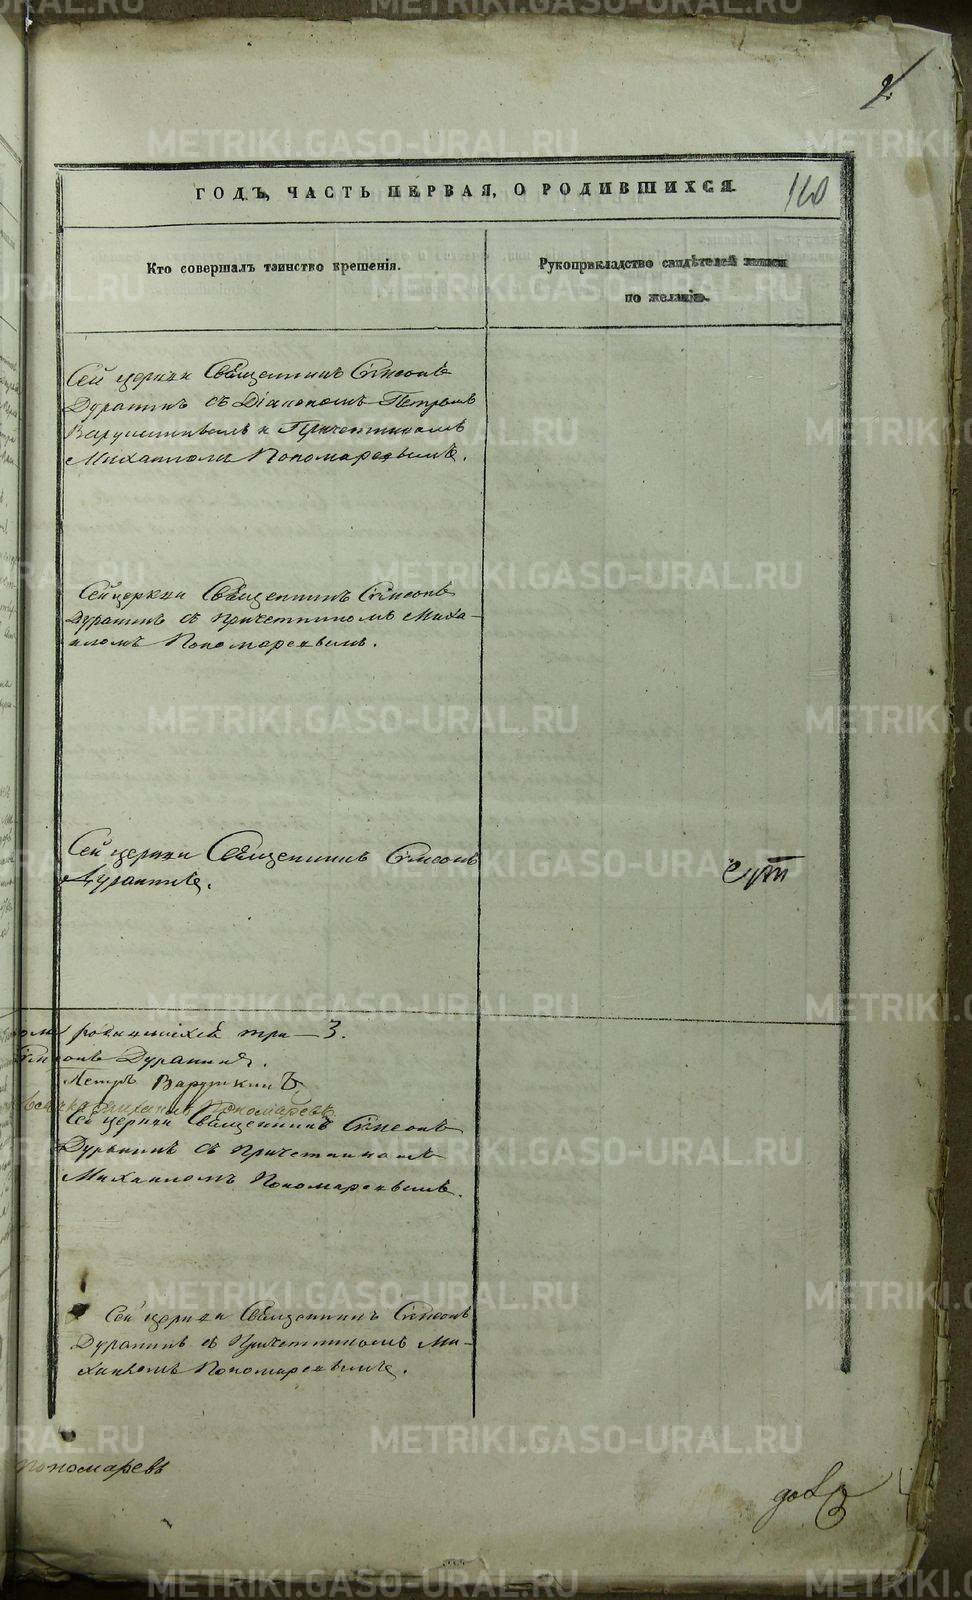 2.
ГОДЪ, ЧАСТЬ ПЕРВАЯ, О РОДИВШИХСЯ.
110
Кто совершалъ таинство крещенія.
Рукоприкладство свидѣтелей записи
по желанію.
Сей церкви Священникъ Симеонъ
Дуранинъ съ Діакономъ Петромъ
и Причетникомъ
Михаиломъ Пономаревымъ.
Сей церкви Священникъ Симеонъ
Дуранинъ съ Причетникомъ Миха-
иломъ Пономаревымъ.
Сей церкви Священникъ Симеонъ
Дуранинъ.
родившихся три 3.
Дуранинъ.
Петръ Варушкинъ
Михаилъ Пономаревъ
Сей церкви Священникъ Симеонъ
Дуранинъ съ Причетникомъ
Михаиломъ Пономаревымъ.
Сей церкви Священникъ Симеонъ
Дуранинъ съ Причетникомъ Ми-
хаиломъ Пономаревымъ.
Пономаревъ
METRIKI.GASO-URAL.RU